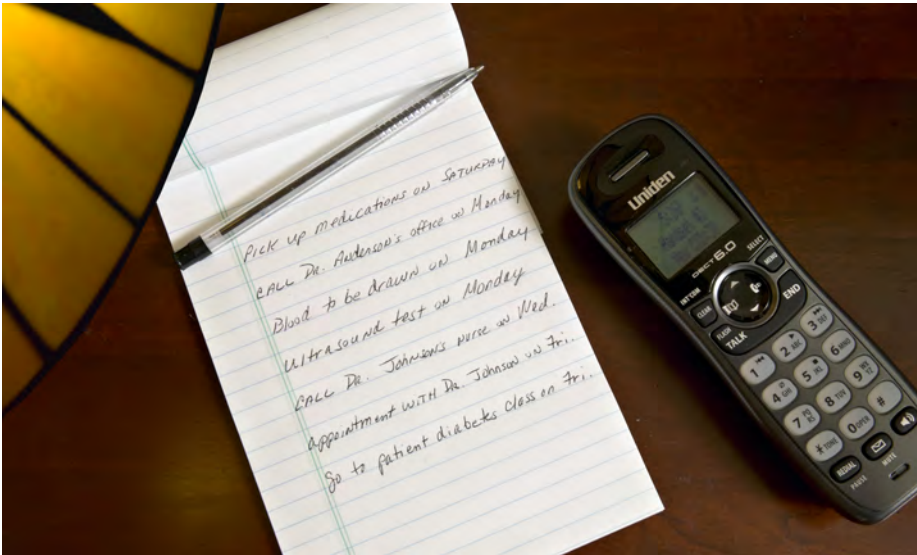 Pick up medications on Saturday
Call Dr. Anderson's office on Monday
Blood to be drawn on Monday
Ultrasound test on Monday
Call Dr. Johnson's nurse on Wed.
appointment with Dr. Johnson on Fri.
Go to patient diabetes class on Fri.
Uniden
DECT 6.0
SELECT
MENU
INT'COM
CLEAR
END
FLASH
TALK
1
2 ABC
3 DEF
4 GHI
5 JKL
6 MNO
7 PQRS
8 TUV
9 WXYZ
* TONE
0 OPER
#
REDIAL
PAUSE
MUTE